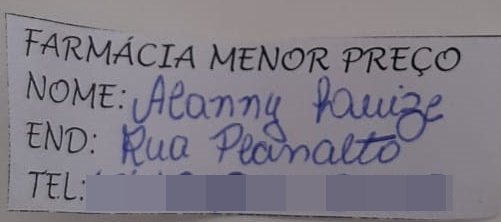 FARMÁCIA MENOR PREÇO
NOME: Alanny Rauize
END: Rua Planalto
TEL: